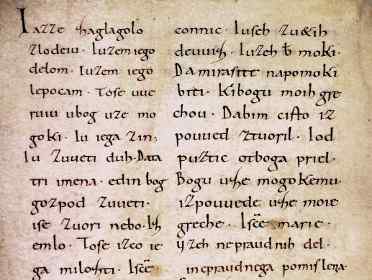 Iazze zaglagolo
zlodeiu. Iuzem iego
delom. Iuzem iego
lepocam. Tose uue
ruiu ubog uze mo
goki. Iu iega zin;
Iu zuueti duh. Data
tri imena. edin bog
gozpod zuueti.
ise zuori nebo. Iz
emlo. Tose izco ie
ga milozti. Isc̄e
connic. Iuseh zuetih
deuuiz. Iuzeh moki
Da mirasite napomoki
biti. Kibogu moih gre
chou. Dabim cisto iz
pouued ztuoril. Iod
puztic otboga priel.
Bogu uze mogokemu.
izpouuede uze moie
greche. Isc̄e marie.
uzeh nepraudnih del.
inepraudnega pomislena.